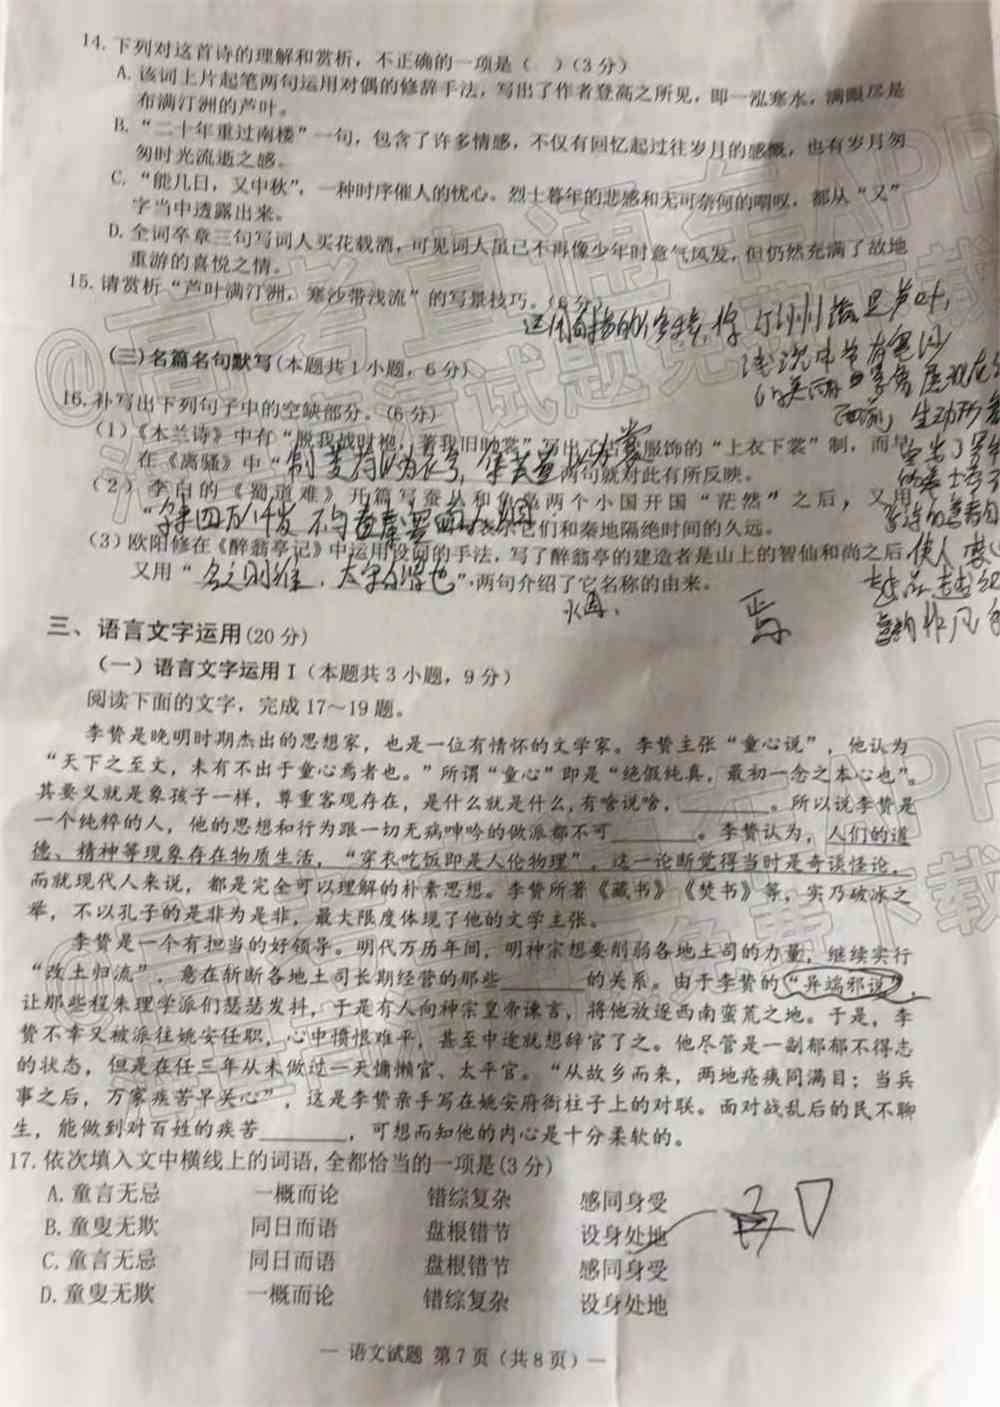 14.下列对这首诗的理解和赏析，不正确的一项是（ ）(3分)
A.该词上片起笔两句运用对偶的修辞手法，写出了作者登高之所见，即一泓寒水，满眼尽是
布满汀洲的芦叶。
B.“二十年重过南楼”一句，包含了许多情感，不仅有回忆起过往岁月的感慨，也有岁月匆
匆时光流逝之感。
C.“能几日，又中秋”，一种时序催人的忧心。烈士暮年的悲感和无可奈何的喟叹，都从“又”
字当中透露出来。
D.全词卒章三句写词人买花载酒，可见词人虽已不再像少年时意气风发，但仍然充满了故地
重游的喜悦之情。
15.请赏析“芦叶满汀洲，寒沙带浅流”的写景技巧。(6分)
(三)名篇名句默写(本题共1小题，6分)
16.补写出下列句子中的空缺部分。(6分)
(1)《木兰诗》中有“脱我战时袍，著我旧时裳”写出了古代服饰的“上衣下裳”制，而早
在《离骚》中“制芰荷以为衣兮，集芙蓉以为裳”两句就对此有所反映。
(2)李白的《蜀道难》开篇写蚕丛和鱼凫两个小国开国“茫然”之后，又用
“尔来四万八千岁 不与秦塞通人烟”表示它们和秦地隔绝时间的久远。
(3)欧阳修在《醉翁亭记》中运用设问的手法，写了醉翁亭的建造者是山上的智仙和尚之后，
又用“名之则谁，太守自谓也”，两句介绍了它名称的由来。
三、语言文字运用(20分)
(一)语言文字运用Ⅰ(本题共3小题，9分)
阅读下面的文字，完成17～19题。
李贽是晚明时期杰出的思想家，也是一位有情怀的文学家。李贽主张“童心说”，他认为
“天下之至文，未有不出于童心焉者也。”所谓“童心”即是“绝假纯真，最初一念之本心也”。
其要义就是象孩子一样，尊重客观存在，是什么就是什么,有啥说啥，________。所以说李贽是
一个纯粹的人，他的思想和行为跟一切无病呻吟的做派都不可________。李贽认为，人们的道
德、精神等现象存在物质生活，“穿衣吃饭即是人伦物理”，这一论断觉得当时是奇谈怪论，
而就现代人来说，都是完全可以理解的朴素思想。李贽所著《藏书》《焚书》等，实乃破冰之
举，不以孔子的是非为是非，最大限度体现了他的文学主张。
李贽是一个有担当的好领导。明代万历年间，明神宗想要削弱各地土司的力量，继续实行
“改土归流”，意在斩断各地土司长期经营的那些________的关系。由于李贽的“异端邪说”，
让那些程朱理学派们瑟瑟发抖，于是有人向神宗皇帝谏言，将他放逐西南蛮荒之地。于是，李
贽不幸又被派往姚安任职，心中愤恨难平，甚至中途就想辞官了之。他尽管是一副郁郁不得志
的状态，但是在任三年从未做过一天慵懒官、太平官。“从故乡而来，两地疮痍同满目；当兵
事之后，万家疾苦早关心”，这是李贽亲手写在姚安府衙柱子上的对联。面对战乱后的民不聊
生，能做到对百姓的疾苦________，可想而知他的内心是十分柔软的。
17.依次填入文中横线上的词语,全都恰当的一项是(3分)
A.童言无忌 一概而论 错综复杂 感同身受
B.童叟无欺 同日而语 盘根错节 设身处地
C.童言无忌 同日而语 盘根错节 感同身受
D.童叟无欺 一概而论 错综复杂 设身处地
— 语文试题 第7页（共8页）—